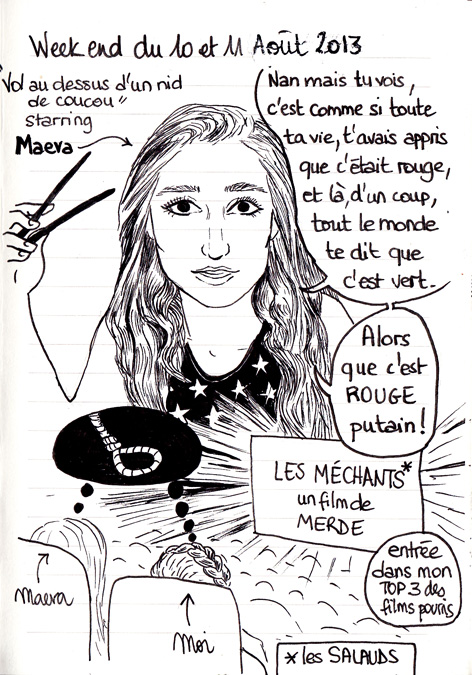 Week end du 10 et 11 Août 2013
Vol au dessus d'un nid
de coucou"
starring
Maeva
Nan mais tu vois,
c'est comme si toute
ta vie, t'avais appris
que c'était rouge,
et là, d'un coup,
tout le monde
te dit que
c'est vert.
Alors
que c'est
ROUGE
putain !
LES MÉCHANTS*
un film de
MERDE
entrée
dans mon
TOP 3 des
films pourris
Maeva
Moi
*les SALAUDS